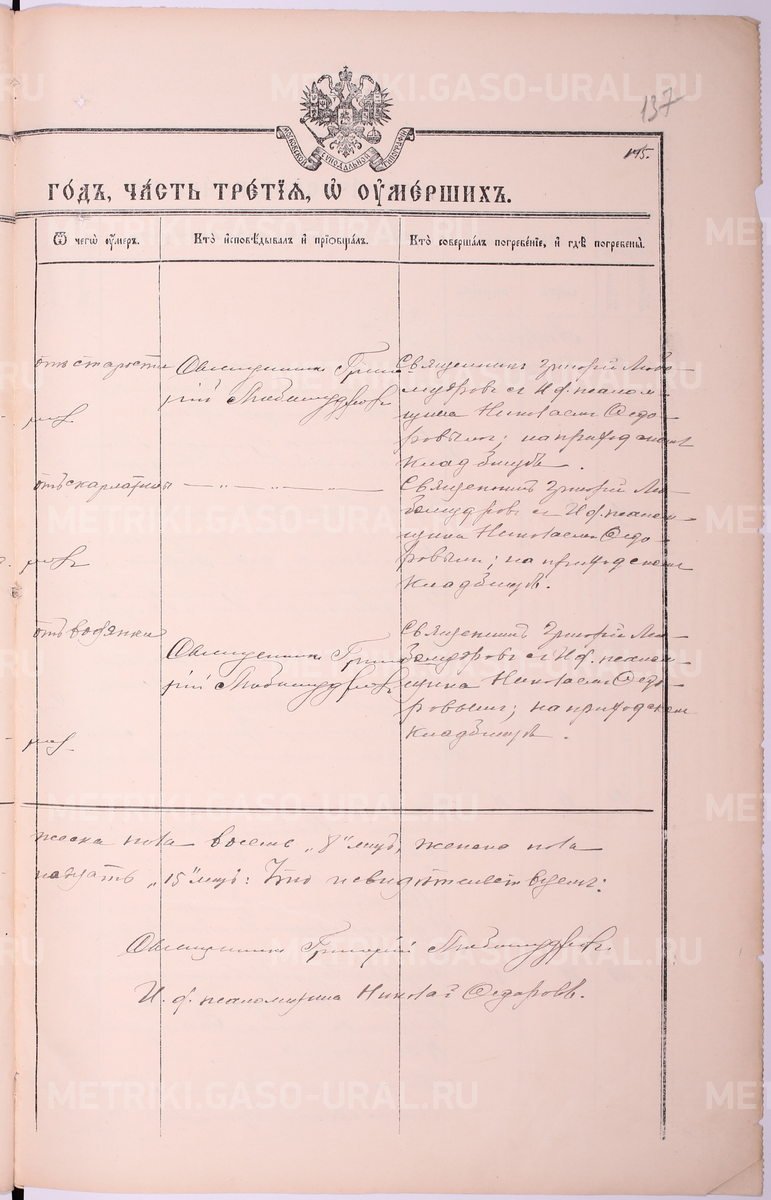 METRIKI.GASO-URAL.RU
137
МОСКОВСКОЙ СѴНОДАЛЬНОЙ ТИПОГРАФІИ
145.
ГОДЪ, ЧАСТЬ ТРЕТІЯ, Ѿ ОУМЕРШИХЪ.
Ѿ чегѡ оумеръ.
Кто исповѣдывалъ и пріобщалъ.
Кто совершалъ погребеніе, и гдѣ погребены.
отъ старости
Священникъ Григо-
рій Любомудровъ
Священникъ Григорій Любо-
мудровъ съ И. ф. псалом-
щика Николаемъ Ѳедо-
ровымъ; на приходскомъ
кладбищѣ.
отъ скарлатины
— „ — „ —
Священникъ Григорій Лю-
бомудровъ съ И. ф. псалом-
щика Николаемъ Ѳедо-
ровымъ; на приходскомъ
кладбищѣ.
отъ водянки
Священникъ Григо-
рій Любомудровъ
Священникъ Григорій Лю-
бомудровъ съ И. ф. псалом-
щика Николаемъ Ѳедо-
ровымъ; на приходскомъ
кладбищѣ.
пола восемь „8“ лицъ, женска пола
„15“ лицъ: Что и свидѣтельствуемъ:
Священникъ Григорій Любомудровъ.
И. ф. псаломщика Николай Ѳедоровъ.